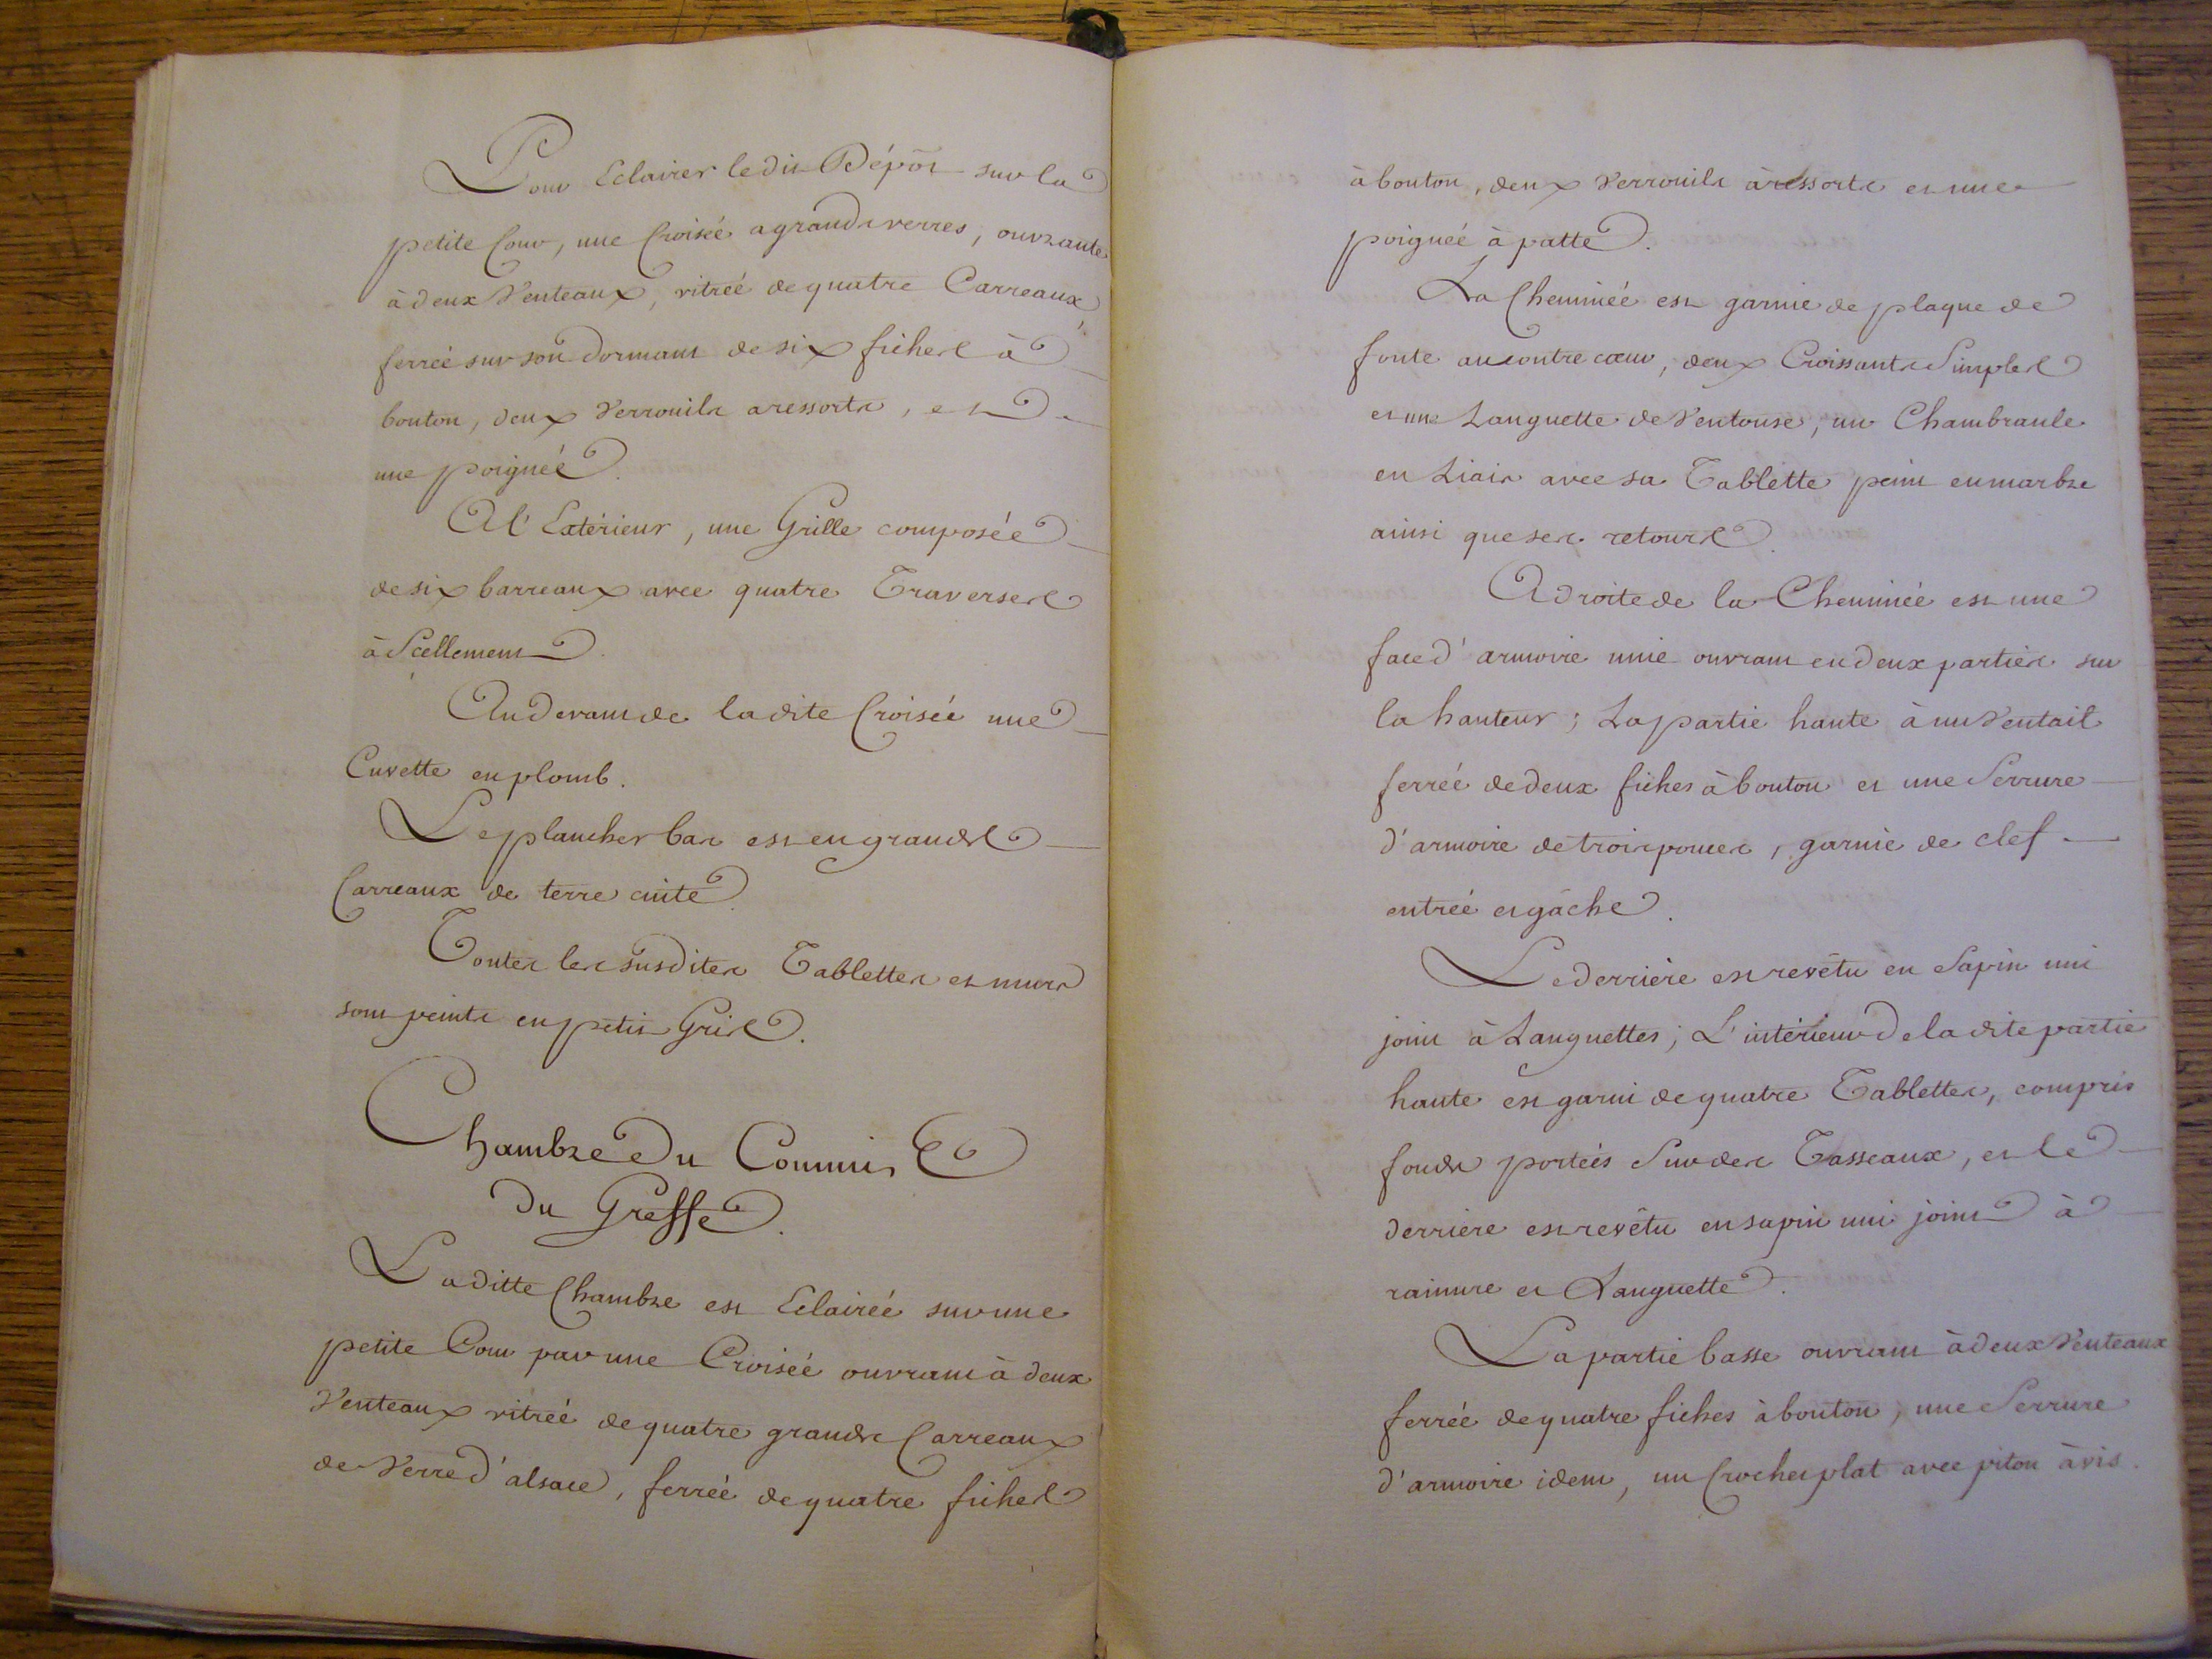 Pour Eclairer ledit Dépôt sur la
petite Cour, une Croisée a grands verres, ouvrante
à deux Venteaux, vitrée de quatre Carreaux,
ferrée sur son dormant de six fiches à
bouton, deux Verrouils a ressorts, et
une poignée.
A l'Extérieur, une Grille composée
de six barreaux avec quatre Traverses
à Scellement.
Au devant de la dite Croisée une
Cuvette en plomb.
Le plancher bas est en grands
Carreaux de terre cuite.
Toutes les susdites Tablettes et murs
sont peints en petit Gris.
Chambre Du Commis
Du Greffe.
La ditte Chambre est Eclairée sur une
petite Cour par une Croisée ouvrant à deux
Venteaux vitrée de quatre grands Carreaux
de Verre d'alsace, ferrée de quatre fiches
à bouton, deux Verrouils à ressorts et une
poignée à patte.
La Cheminée est garnie de plaque de
fonte au contre cœur, deux Croissants Simples
et une Languette de Ventouse, un Chambranle
en Liais avec sa Tablette peint en marbre
ainsi que ses retours.
A droite de la Cheminée est une
face d'armoire unie ouvrant en deux parties sur
la hauteur; La partie haute à un Ventail
ferrée de deux fiches à bouton et une Serrure
d'armoire de trois pouces, garnie de clef
entrée et gâche.
Le derrière est revêtu en Sapin uni
joint à Languettes; L'intérieur de la dite partie
haute est garni de quatre Tablettes, compris
fonds portées Sur des Tasseaux, et le
derrière est revêtu en sapin uni joint à
rainure et Languette.
La partie basse ouvrant à deux Venteaux
ferrée de quatre fiches à bouton, une Serrure
d'armoire idem, un Crochet plat avec piton à vis.